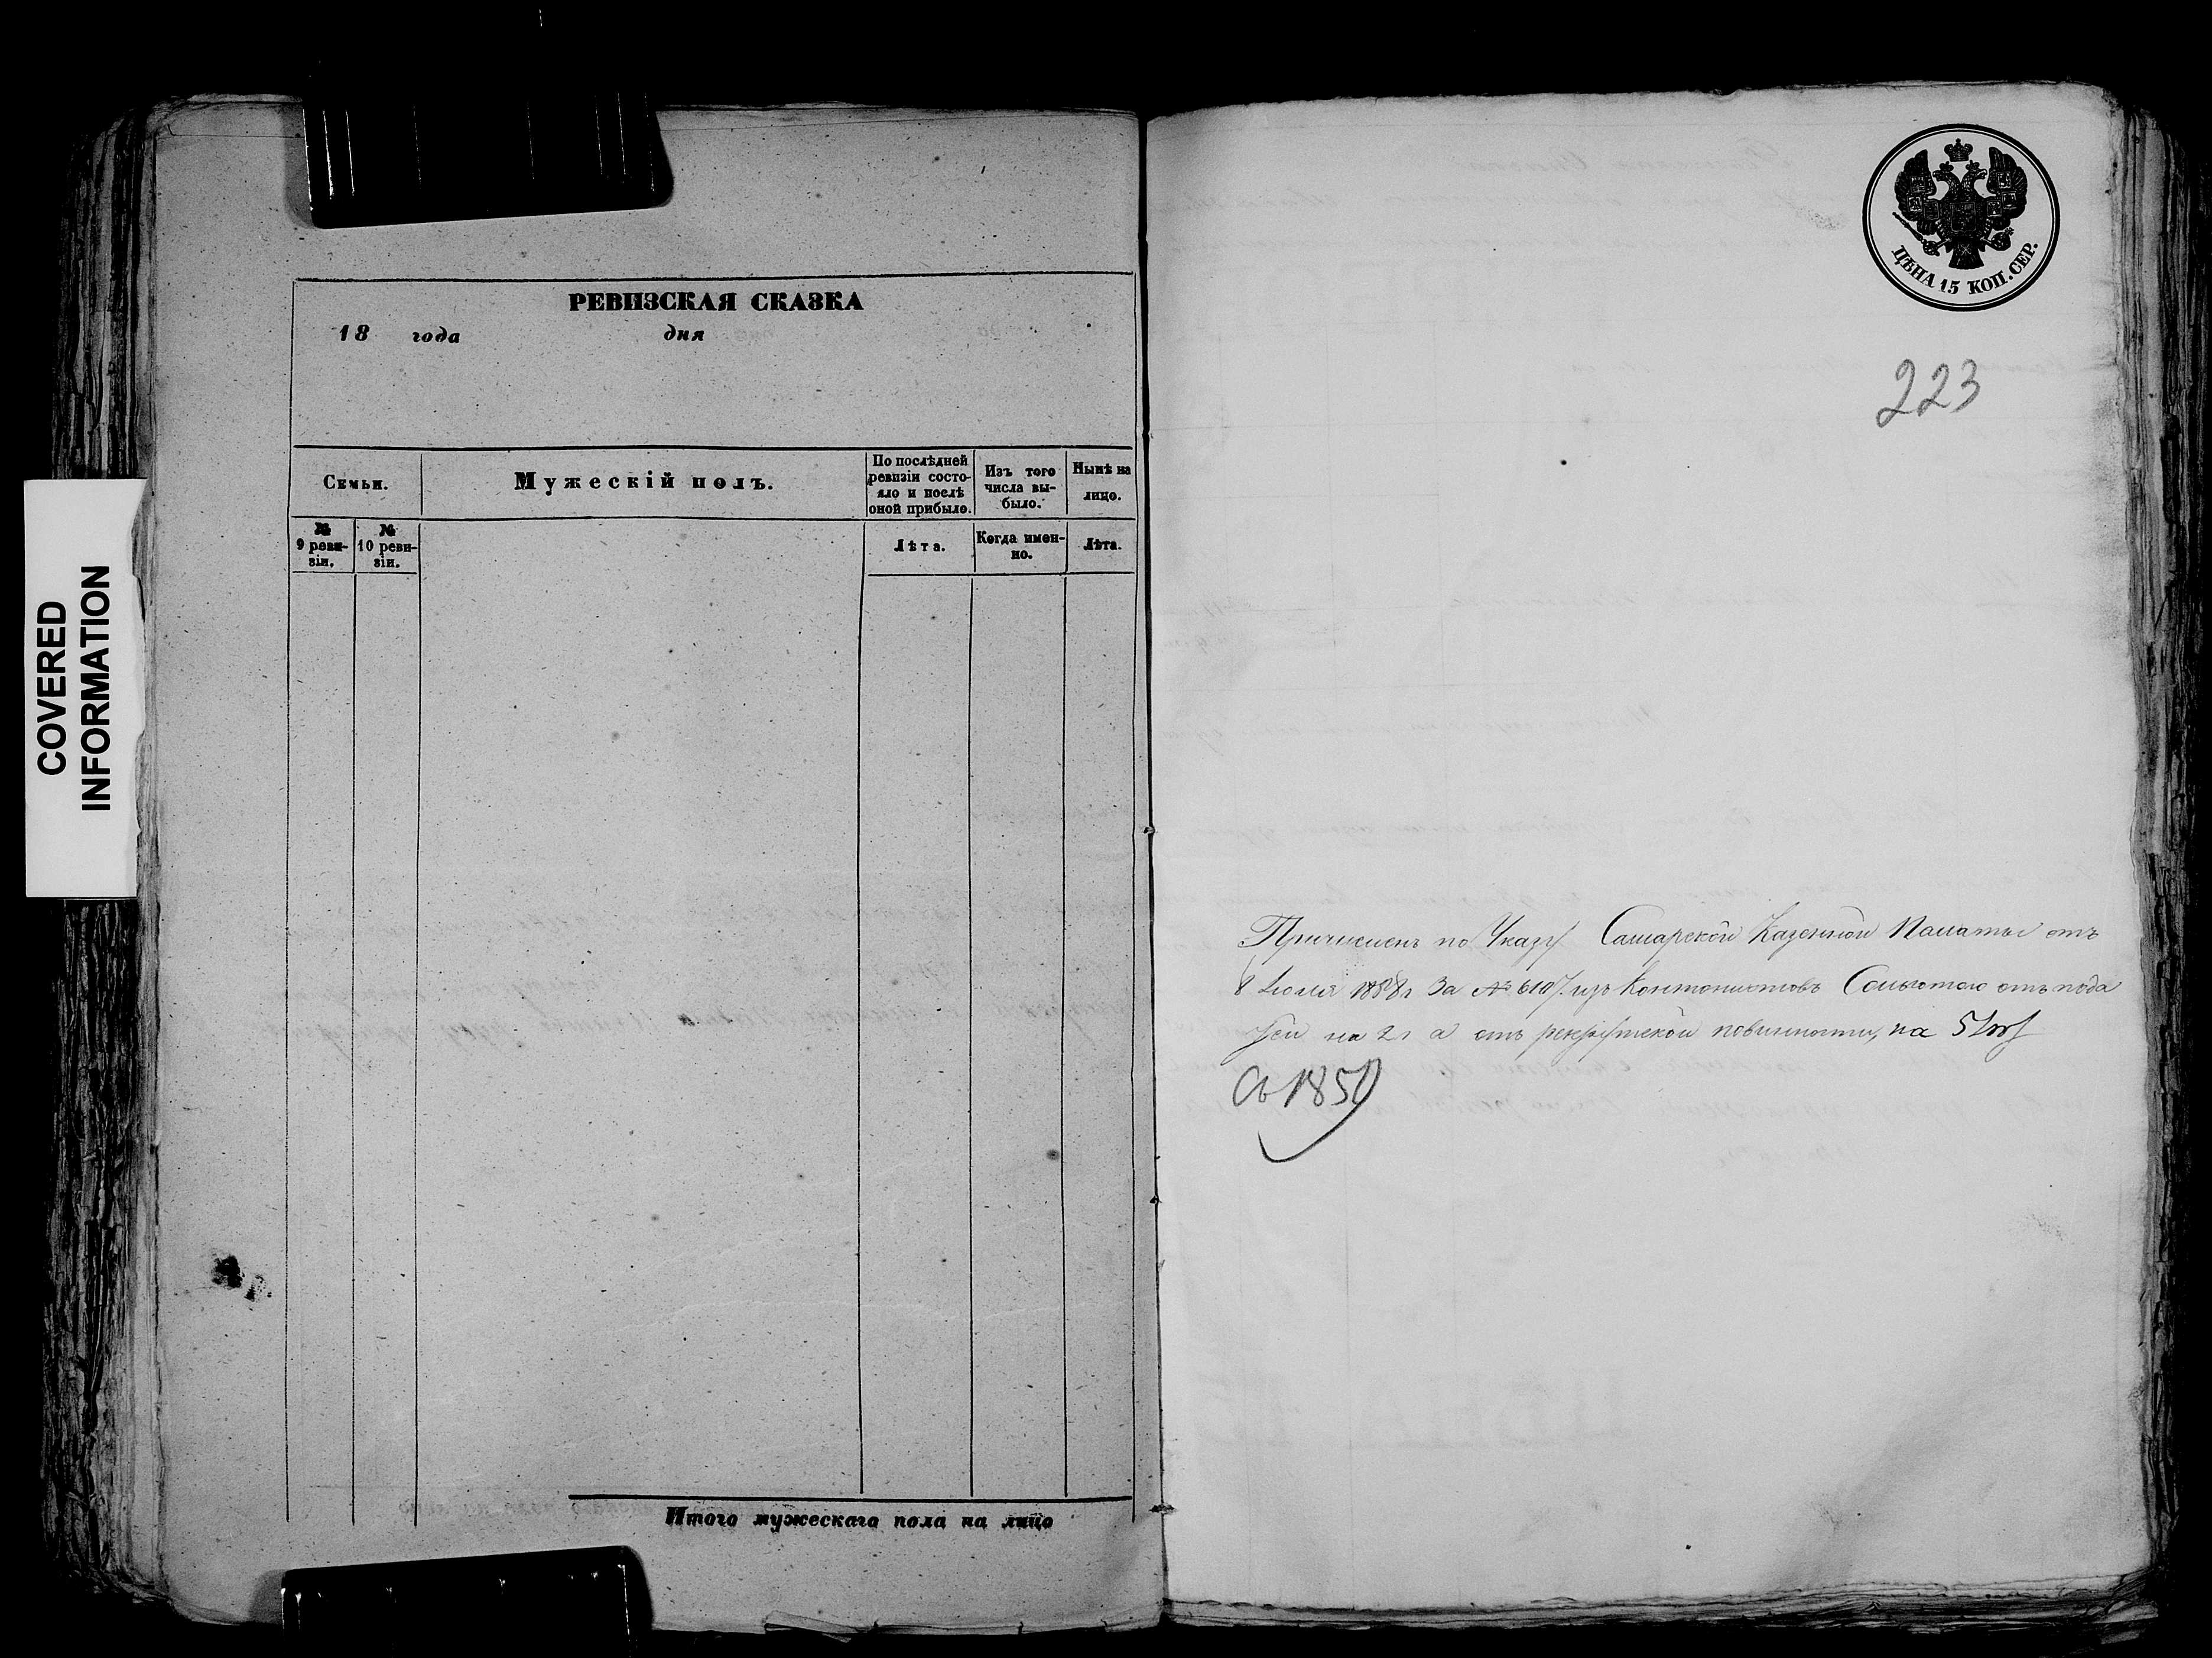 COVERED
INFORMATION
РЕВИЗСКАЯ СКАЗКА
18 года дня
Семьи.
Мужескій полъ.
По послѣдней
ревизіи состо-
яло и послѣ
оной прибыло.
Изъ того
числа вы-
было.
Нынѣ на
лицо.
№
9 реви-
зіи.
№
10 реви-
зіи.
Лѣта.
Когда имен-
но.
Лѣта.
Итого мужескаго пола на лицо
ЦѢНА 15 КОП. СЕР.
223
Причисленъ по Указу Самарской Казенной Палаты отъ
8 Іюля 1858 г За № 6107. изъ Кантонистовъ Сльготою отъ пода
тей на 2 г а отъ рекрутской повинности, на 5
Съ 1859